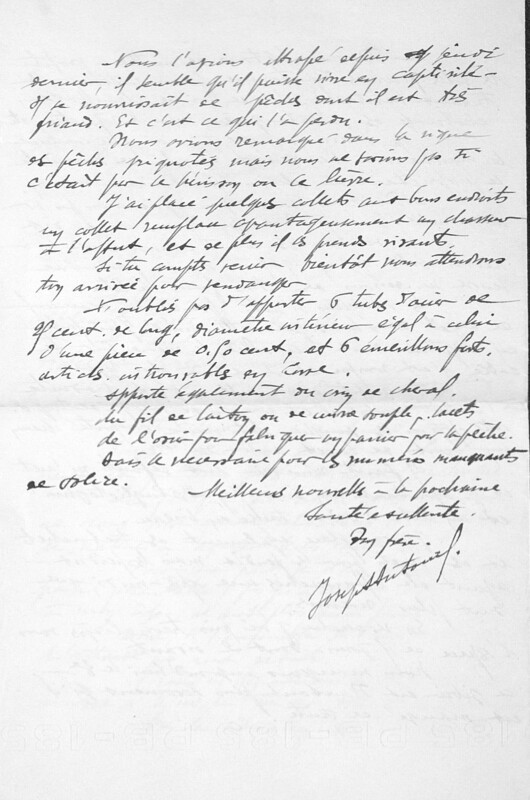 Nous l'avions attrapé depuis jeudi
dernier, il semble qu'il puisse vivre en captivité
Il se nourrissait de pêches dont il est très
friand. Et c'est ce qui l'a perdu.
Nous avions remarqué dans la vigne
des pêches grignotés mais nous ne savions pas si
c'était par le hérisson ou le lièvre.
J'ai placé quelques collets aux bons endroits
un collet remplace avantageusement un chasseur
à l'affut, et de plus il les prends vivants.
Si tu comptes venir bientôt nous attendrons
ton arrivée pour vendanger.
N'oublie pas d'apporter 6 tubes d'acier de
cent. de long, diamètre intérieur égal à celui
d'une pièce de 0.50 cent, et 6 émerillons forts.
articles introuvables en Corse.
apporte également du crin de cheval.
du fil de laiton ou de cuivre souple, lacets
de l'osier pour fabriquer un panier pour la pêche.
Fais le nécessaire pour les numéros manquants
de
Meilleurs nouvelle à la prochaine
Santé excellente.
Ton frère.
Joseph Antoine.